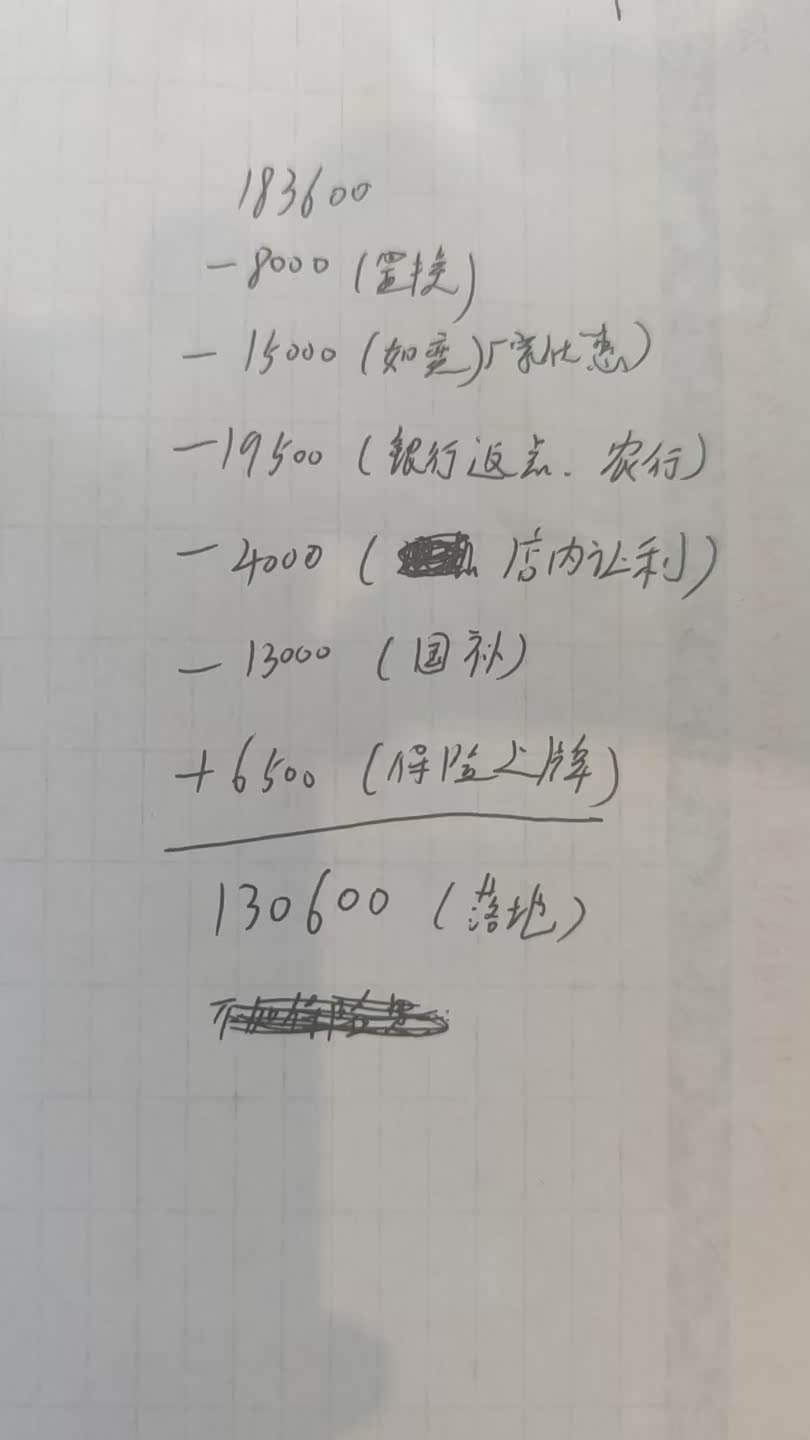 183600
-8000 (置换)
- 15000 (如变)厂家优惠)
-19500 (银行返点. 农行)
- 4000 ( 店内让利)
- 13000 (国补)
+6500 (保险上牌)
130600 (落地)